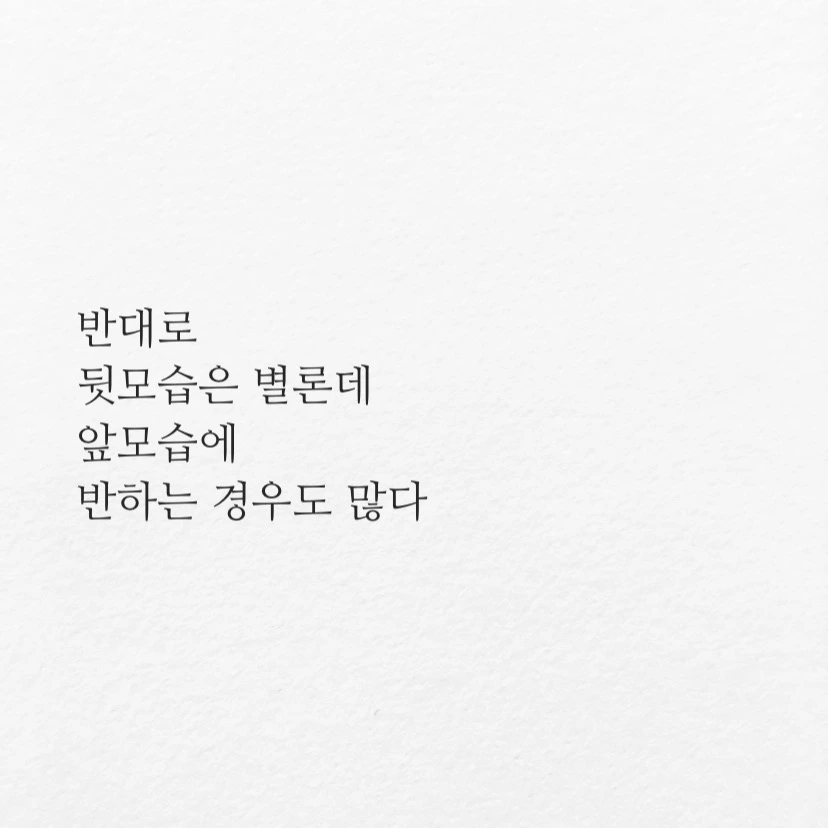 반대로
뒷모습은 별론데
앞모습에
반하는 경우도 많다